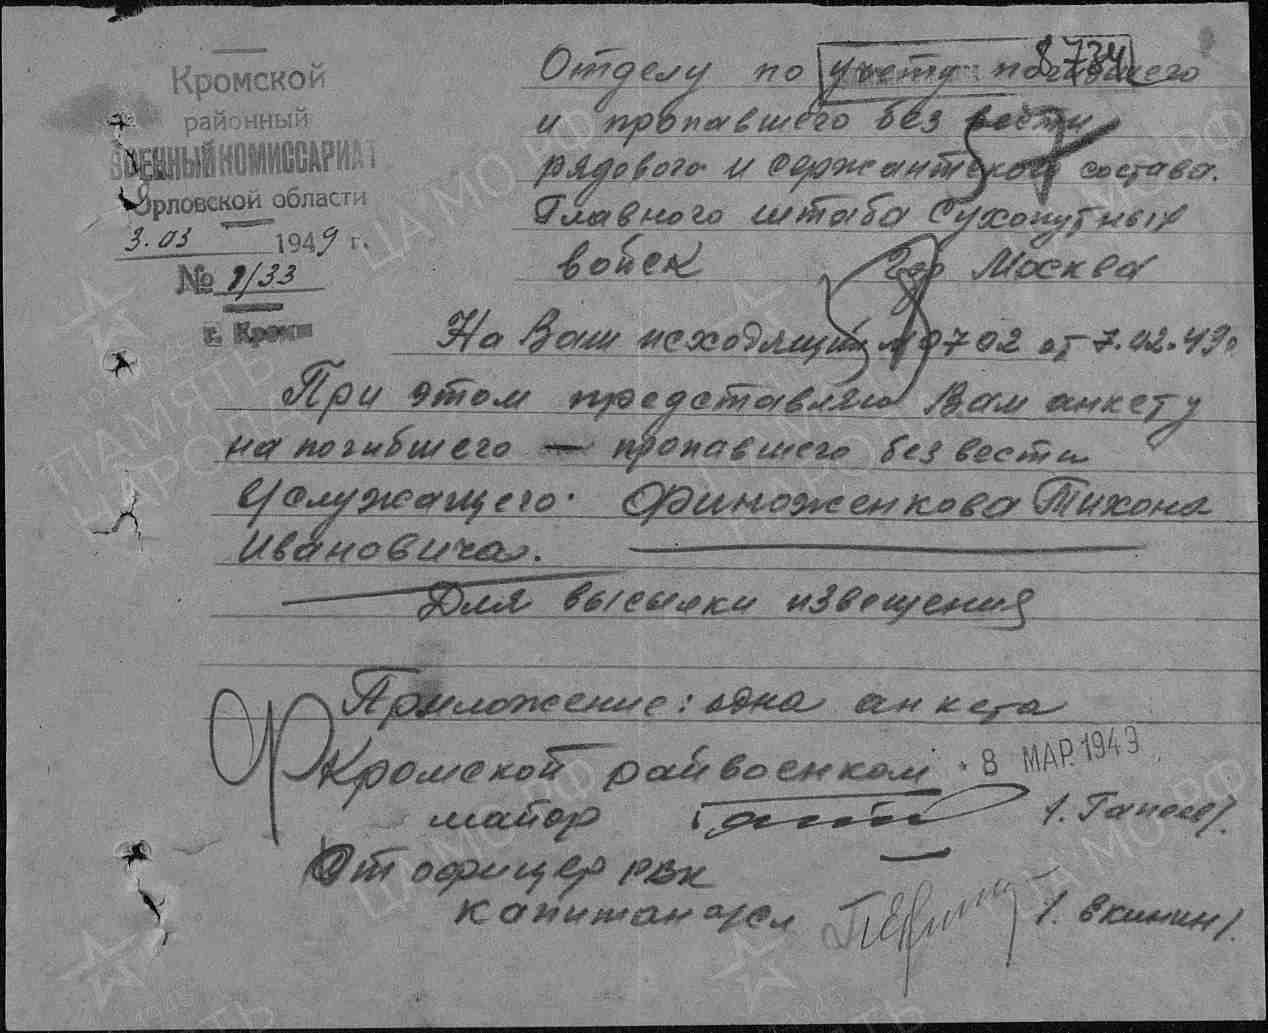 Кромской
районный
ВОЕННЫЙ КОМИССАРИАТ
Орловской области
3.03 1949 г.
№ 1/33
г. Кромы
8734
Отделу по учету погибшего
и пропавшего без вести
рядового и сержантского состава.
Главного штаба Сухопутных
войск гор Москва
На Ваш исходящий № 0702 от 7.02.49г.
При этом представляю Вам анкету
на погибшего — пропавшего без вести
в/служащего. Финоженкова Тихона
Ивановича.
Для высылки извещения
Приложение: одна анкета
Кромской райвоенком
8 МАР 1949
майор
От офицер РВК
капитан
ЦАМО РФ
ПАМЯТЬ
НАРОДА